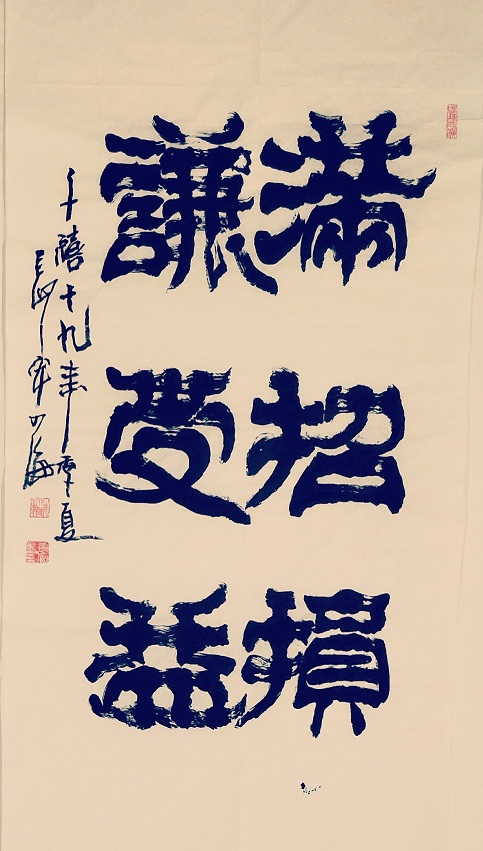 滿招損
謙受益
千禧十九年季夏